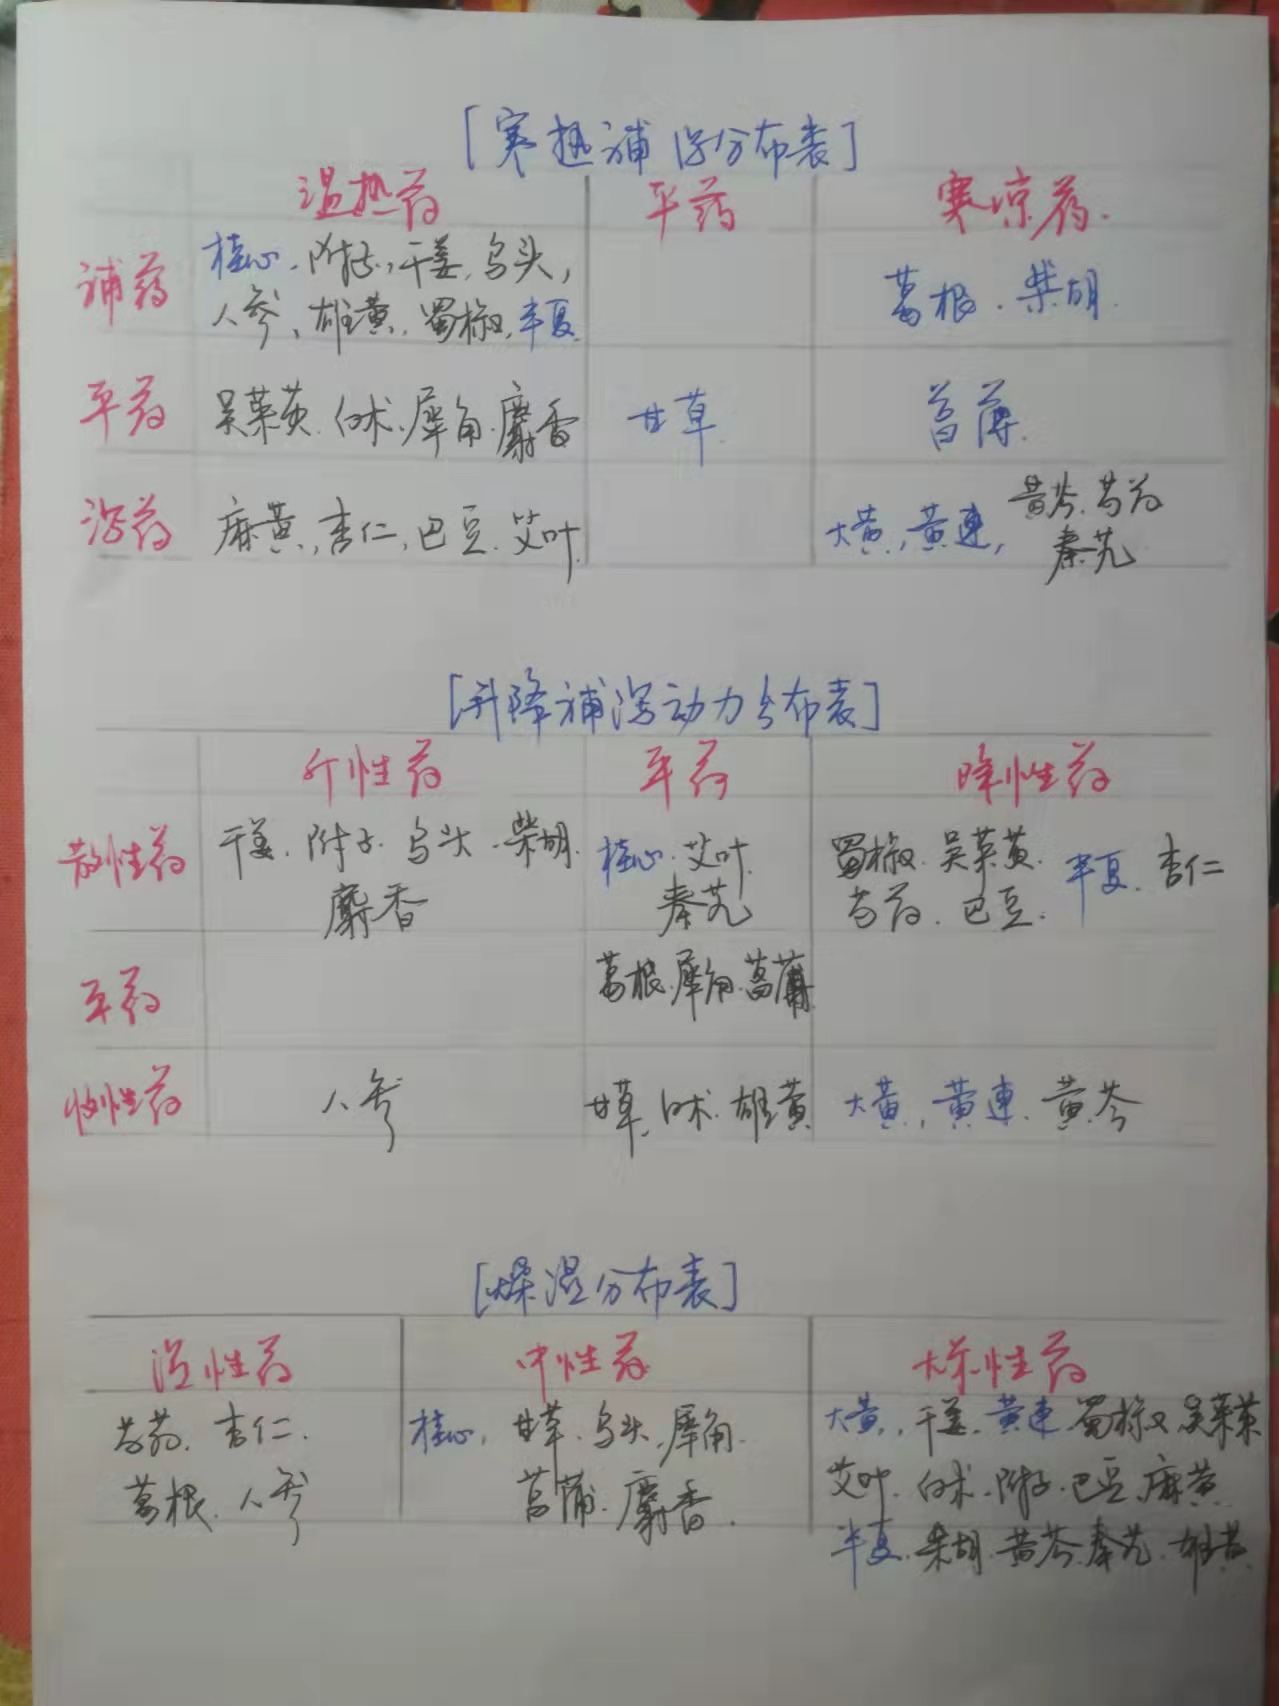 [寒热补泻分布表]
温热药 平药 寒凉药.
补药 桂心、附子,干姜,乌头, 葛根.柴胡.
人参、雄黄,蜀椒,半夏.
平药 吴茱萸.白术.犀角.麝香 甘草. 菖蒲.
泻药 麻黄,杏仁,巴豆.艾叶. 大黄,黄连,黄芩.芍药
秦艽
[升降补泻动力分布表]
升性药 平药 降性药
散性药 干姜.附子.乌头.柴胡. 桂心.艾叶. 蜀椒.吴茱萸.半夏.杏仁
麝香 秦艽 芍药.巴豆.
平药 葛根.犀角.菖蒲
收性药 人参 甘草.白术.雄黄 大黄,黄连.黄芩
[燥湿分布表]
湿性药 中性药 燥性药
芍药.杏仁. 桂心,甘草.乌头.犀角. 大黄,干姜.黄连.蜀椒.吴茱萸
葛根.人参 菖蒲.麝香. 艾叶.白术.附子.巴豆.麻黄
半夏.柴胡.黄芩.秦艽.雄黄